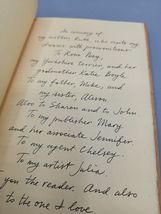 In memory of
my mother, Ruth, who wrote my
To Rose Posy,
my Yorkshire terrier, and her
godmother Katie Boyle.
To my father, Mike, and
my sister, Alison
Also to Sharon and to John
To my publisher Mary
and her associate Jennifer.
To my agent Chelsey.
To my artist Julia.
you the reader. And also
to the one I love